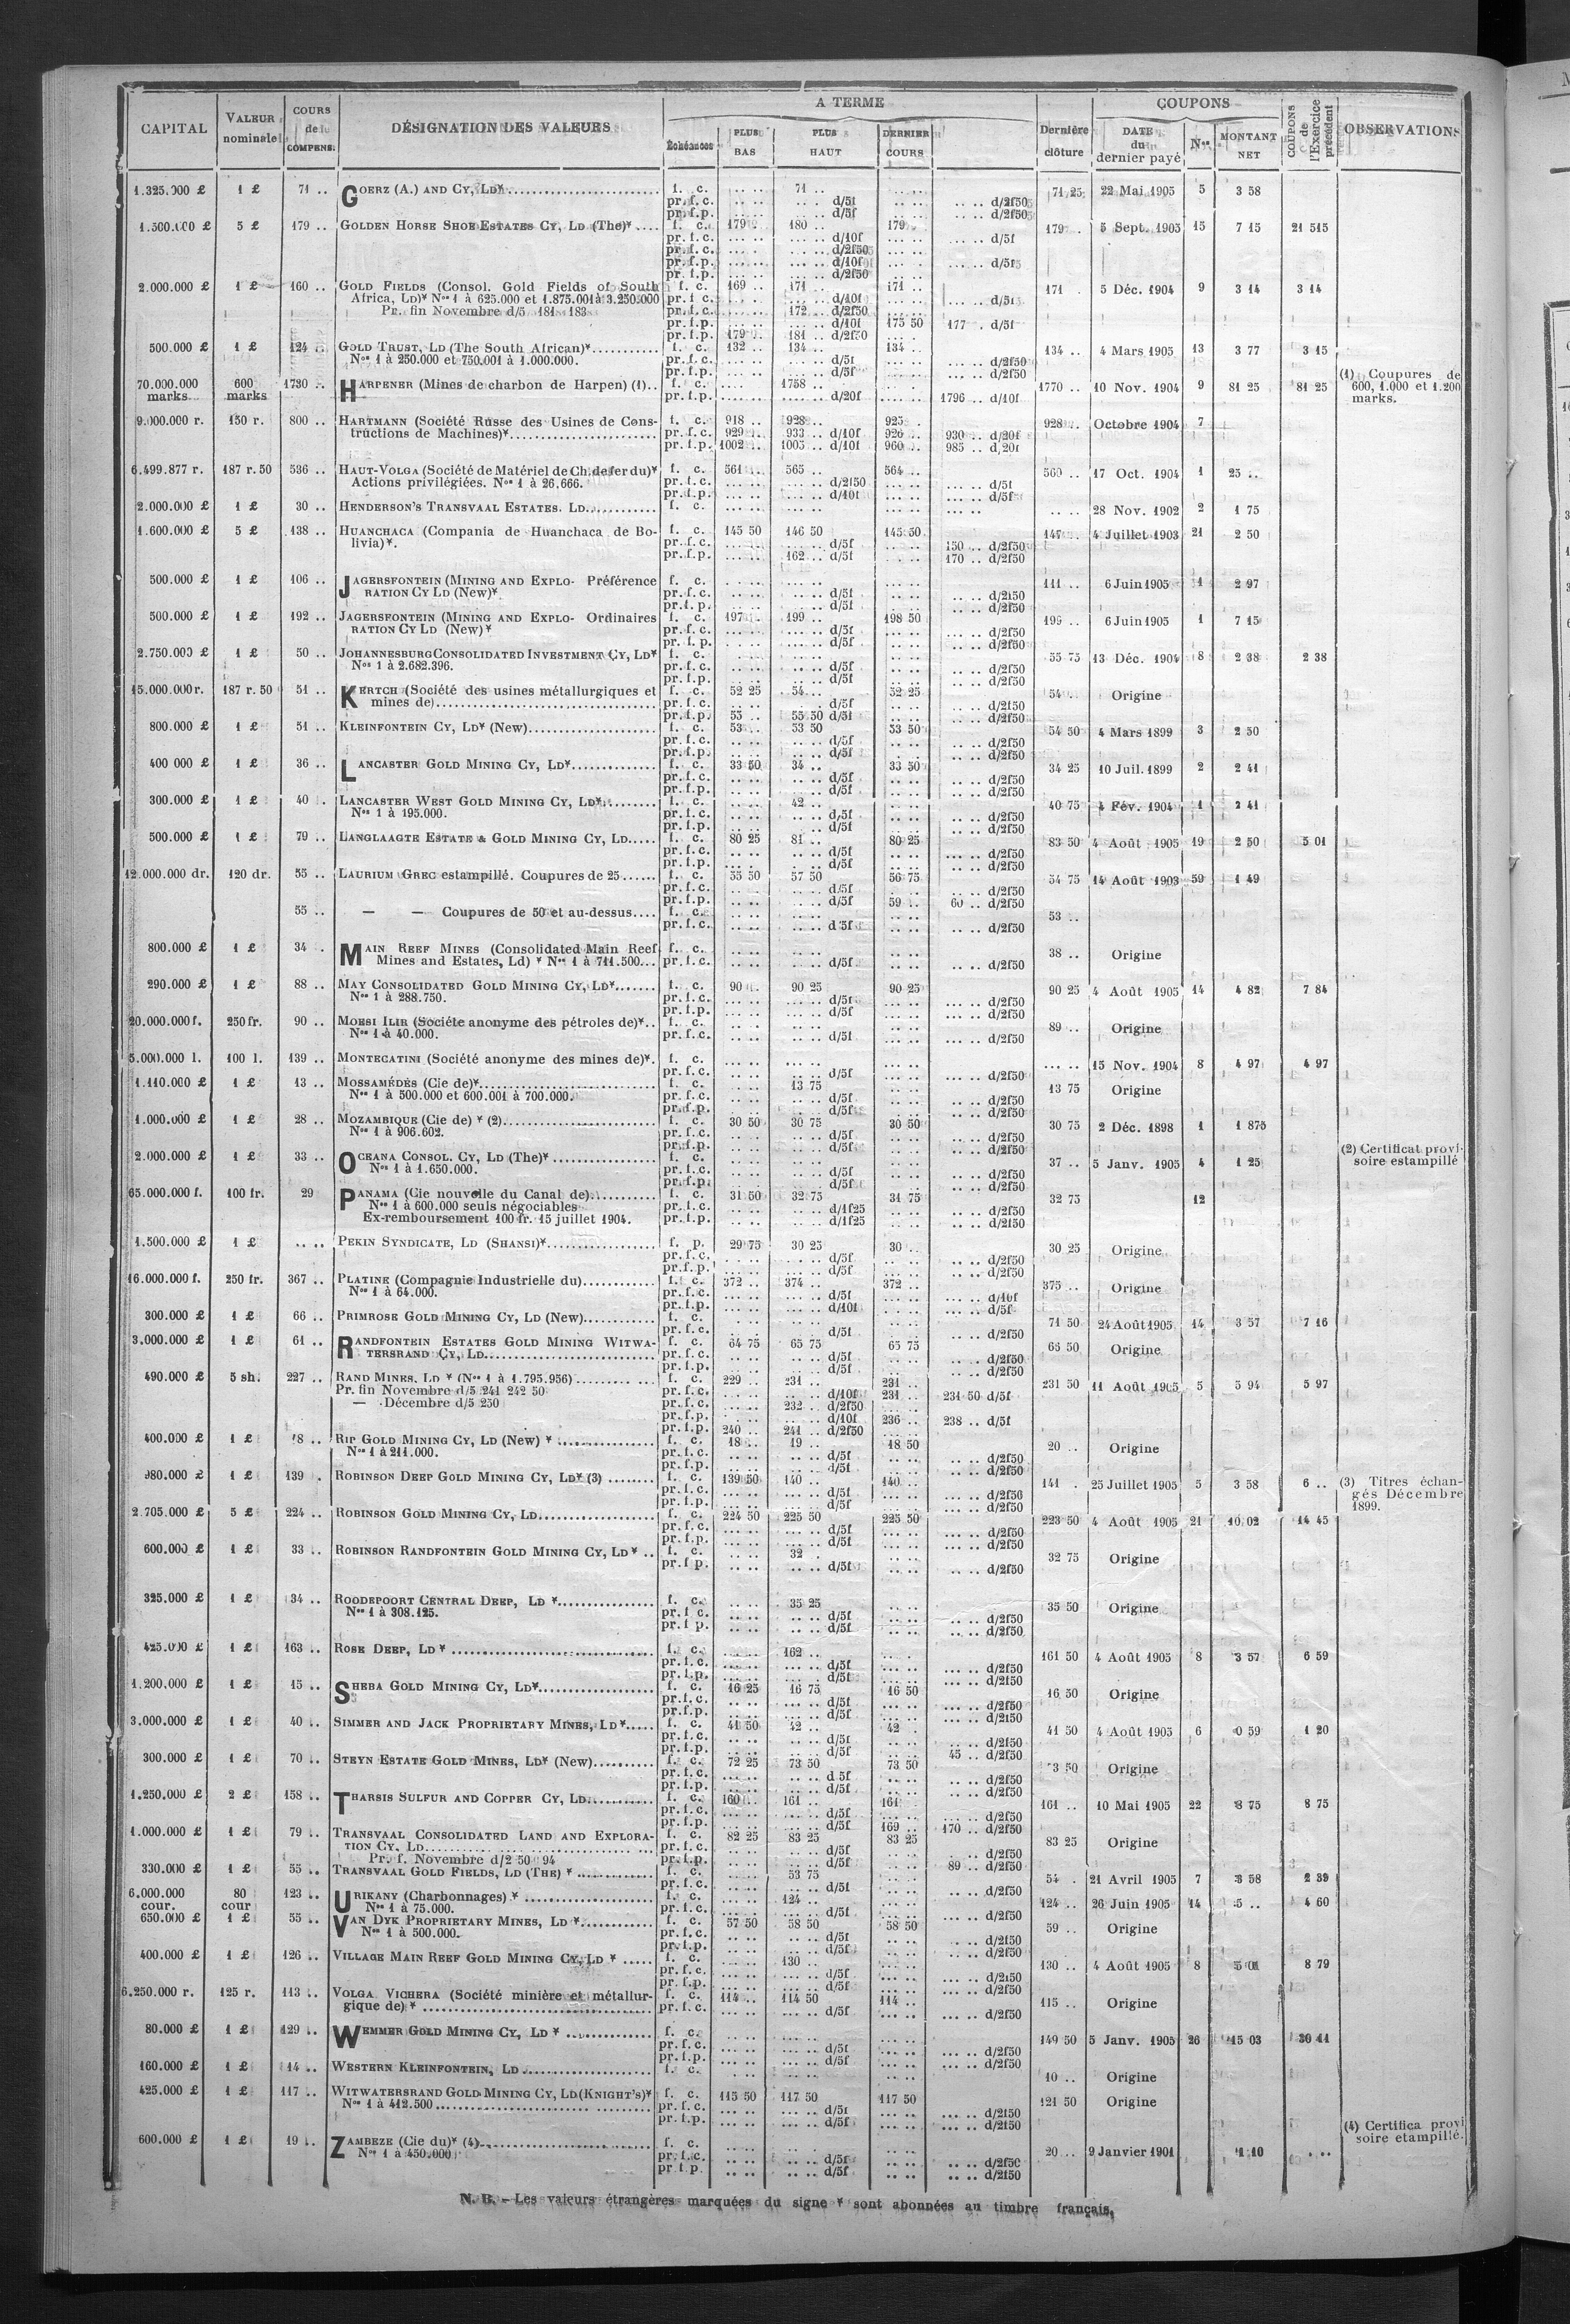 CAPITAL
VALEUR nominale
COURS de COMPENS.
DÉSIGNATION DES VALEURS
A TERME
Échéances
PLUS BAS
PLUS HAUT
DERNIER COURS
Dernière clôture
COUPONS
DATE du dernier payé
Nos
MONTANT NET
COUPONS de l'Exercice précédent
OBSERVATIONS
1.325.000 £ 1 £ 71 .. GOERZ (A.) AND CY, LD* f. c. .. .. 71 .. .. .. 71 25 22 Mai 1905 5 3 58
pr. f. c. .. .. .. .. d/5f .. .. .. .. d/2f50
pr. f. p. .. .. .. .. d/5f .. .. .. .. d/2f50
1.500.000 £ 5 £ 179 .. GOLDEN HORSE SHOE ESTATES CY, LD (The)* f. c. 179 .. 180 .. 179 .. 179 .. 5 Sept. 1905 15 7 15 21 515
pr. f. c. ... .. ... .. d/10f ... .. ... .. d/5f
pr. f. c. ... .. ... .. d/2f50 ... ..
pr. f. p. ... .. ... .. d/10f ... .. ... .. d/5f
pr. f. p. ... .. ... .. d/2f50
2.000.000 £ 1 £ 160 .. GOLD FIELDS (Consol. Gold Fields of South f. c. 169 .. 171 .. 171 .. 171 . 5 Déc. 1904 9 3 14 3 14
Africa, LD)* Nos 1 à 625.000 et 1.875.001 à 3.250.000 pr. f. c. ... .. ... .. d/10f ... .. ... .. d/5f
Pr. fin Novembre d/5 181 183 pr. f. c. ... .. 172 .. d/2f50 ... ..
pr. f. p. ... .. ... .. d/10f 175 50 177 .. d/5f
pr. f. p. 179 .. 181 .. d/2f50
500.000 £ 1 £ 124 .. GOLD TRUST, LD (The South African)* f. c. 132 .. 134 .. 134 .. 134 .. 4 Mars 1905 13 3 77 3 15
Nos 1 à 250.000 et 750.001 à 1.000.000. pr. f. c. ... .. ... .. d/5f ... .. d/2f50
pr. f. p. ... .. ... .. d/5f ... .. d/2f50
70.000.000 marks 600 marks 1730 .. HARPENER (Mines de charbon de Harpen) (1).. f. c. .... 1758 .. .... .. 1770 .. 10 Nov. 1904 9 81 25 81 25 (1) Coupures de 600, 1.000 et 1.200 marks.
pr. f. p. .... .. .... .. d/20f .... .. 1796 .. d/10f
9.000.000 r. 150 r. 800 .. HARTMANN (Société Russe des Usines de Cons- f. c. 918 .. 928 .. 925 . 928 .. Octobre 1904 7
tructions de Machines)* pr. f. c. 929 .. 933 .. d/10f 926 .. 930 .. d/20f
pr. f. p. 1002 .. 1005 .. d/10f 960 .. 985 .. d/20f
6.499.877 r. 187 r. 50 536 .. HAUT-VOLGA (Société de Matériel de Ch. de fer du)* f. c. 561 .. 565 .. 564 .. 560 .. 17 Oct. 1904 1 25 ..
Actions privilégiées. Nos 1 à 26.666. pr. f. c. ... .. ... .. d/2f50 ... .. ... .. d/5f
pr. f. p. ... .. ... .. d/10f ... .. ... .. d/5f
2.000.000 £ 1 £ 30 .. HENDERSON'S TRANSVAAL ESTATES. LD. f. c. ... .. ... .. ... .. ... .. .. .. 28 Nov. 1902 2 1 75
1.600.000 £ 5 £ 138 .. HUANCHACA (Compania de Huanchaca de Bo- f. c. 145 50 146 50 145 50 147 .. 4 Juillet 1903 21 2 50
livia)*. pr. f. c. ... .. ... .. d/5f ... .. 150 .. d/2f50
pr. f. p. ... .. 162 .. d/5f ... .. 170 .. d/2f50
500.000 £ 1 £ 106 .. JAGERSFONTEIN (MINING AND EXPLO- Préférence f. c. ... .. ... .. ... .. 111 .. 6 Juin 1905 1 2 97
RATION CY LD (New)* pr. f. c. .. .. .. .. d/5f .. .. .. .. d/2f50
pr. f. p. .. .. .. .. d/5f .. .. .. .. d/2f50
500.000 £ 1 £ 192 .. JAGERSFONTEIN (MINING AND EXPLO- Ordinaires f. c. 197 .. 199 .. 198 50 199 .. 6 Juin 1905 1 7 15
RATION CY LD (New)* pr. f. c. ... .. ... .. d/5f ... .. ... .. d/2f50
pr. f. p. ... .. ... .. d/5f ... .. ... .. d/2f50
2.750.000 £ 1 £ 50 .. JOHANNESBURG CONSOLIDATED INVESTMENT CY, LD* f. c. .. .. .. .. .. .. 55 75 13 Déc. 1904 8 2 38 2 38
Nos 1 à 2.682.396. pr. f. c. .. .. .. .. d/5f .. .. .. .. d/2f50
pr. f. p. .. .. .. .. d/5f .. .. .. .. d/2f50
15.000.000 r. 187 r. 50 51 .. KERTCH (Société des usines métallurgiques et f. c. 52 25 54 .. 52 25 54 .. Origine
mines de) pr. f. c. .. .. .. .. d/5f .. .. .. .. d/2f50
pr. f. p. 55 .. 55 50 d/5f .. .. .. .. d/2f50
800.000 £ 1 £ 51 .. KLEINFONTEIN CY, LD* (New) f. c. 53 .. 53 50 53 50 54 50 4 Mars 1899 3 2 50
pr. f. c. .. .. .. .. d/5f .. .. .. .. d/2f50
pr. f. p. .. .. .. .. d/5f .. .. .. .. d/2f50
400 000 £ 1 £ 36 .. LANCASTER GOLD MINING CY, LD* f. c. 33 50 34 .. 33 50 34 25 10 Juil. 1899 2 2 41
pr. f. c. .. .. .. .. d/5f .. .. .. .. d/2f50
pr. f. p. .. .. .. .. d/5f .. .. .. .. d/2f50
300.000 £ 1 £ 40 .. LANCASTER WEST GOLD MINING CY, LD* f. c. .. .. 42 .. .. .. 40 75 4 Fév. 1904 1 2 41
Nos 1 à 195.000. pr. f. c. .. .. .. .. d/5f .. .. .. .. d/2f50
pr. f. p. .. .. .. .. d/5f .. .. .. .. d/2f50
500.000 £ 1 £ 79 .. LANGLAAGTE ESTATE & GOLD MINING CY, LD f. c. 80 25 81 .. 80 25 83 50 4 Août 1905 19 2 50 5 01
pr. f. c. .. .. .. .. d/5f .. .. ... .. d/2f50
pr. f. p. .. .. .. .. d/5f .. .. .. .. d/2f50
12.000.000 dr. 120 dr. 55 .. LAURIUM GREC estampillé. Coupures de 25 f. c. 55 50 57 50 56 75 54 75 14 Août 1903 59 1 49
pr. f. c. .. .. .. .. d/5f .. .. .. .. d/2f50
pr. f. p. .. .. .. .. d/5f 59 .. 60 .. d/2f50
55 .. — — Coupures de 50 et au-dessus f. c. .. .. .. .. .. .. 53 ..
pr. f. c. .. .. .. .. d 5f .. .. .. .. d/2f50
800.000 £ 1 £ 34 . MAIN REEF MINES (Consolidated Main Reef f. c. .. .. .. .. .. .. 38 .. Origine
Mines and Estates, Ld) * Nos 1 à 711.500 pr. f. c. .. .. .. .. d/5f .. .. .. .. d/2f50
290.000 £ 1 £ 88 .. MAY CONSOLIDATED GOLD MINING CY, LD* f. c. 90 .. 90 25 90 25 90 25 4 Août 1905 14 4 82 7 84
Nos 1 à 288.750. pr. f. c. ... .. ... .. d/5f ... .. ... .. d/2f50
pr. f. p. .. .. .. .. d/5f .. .. .. .. d/2f50
20.000.000 f. 250 fr. 90 .. MORSI ILIR (Société anonyme des pétroles de)* f. c. 89 .. Origine
Nos 1 à 40.000. pr. f. c. .. .. .. .. d/5f .. .. .. .. d/2f50
5.000.000 l. 100 l. 139 .. MONTECATINI (Société anonyme des mines de)*. f. c. ... .. ... .. ... .. ... .. 15 Nov. 1904 8 4 97 4 97
pr. f. c. ... .. ... .. d/5f ... .. ... .. d/2f50
1.110.000 £ 1 £ 13 .. MOSSAMÉDÈS (Cie de)* f. c. .. .. 13 75 .. .. 13 75 Origine
Nos 1 à 500.000 et 600.001 à 700.000. pr. f. c. .. .. .. .. d/5f .. .. .. .. d/2f50
pr. f. p. .. .. .. .. d/5f .. .. .. .. d/2f50
1.000.000 £ 1 £ 28 .. MOZAMBIQUE (Cie de) * (2) f. c. 30 50 30 75 30 50 30 75 2 Déc. 1898 1 1 875
Nos 1 à 906.602. pr. f. c. .. .. .. .. d/5f .. .. .. .. d/2f50
pr. f. p. .. .. .. .. d/5f .. .. .. .. d/2f50
2.000.000 £ 1 £ 33 .. OCEANA CONSOL. CY, LD (The)* f. c. .. .. .. .. .. .. 37 .. 5 Janv. 1905 4 1 25 (2) Certificat provi- soire estampillé
Nos 1 à 1.650.000. pr. f. c. .. .. .. .. d/5f .. .. .. .. d/2f50
pr. f. p. .. .. .. .. d/5f .. .. .. .. d/2f50
65.000.000 f. 100 fr. 29 PANAMA (Cie nouvelle du Canal de) f. c. 31 50 32 75 31 75 32 75 12
Nos 1 à 600.000 seuls négociables pr. f. c. .. .. .. .. d/1f25 .. .. .. .. d/2f50
Ex-remboursement 100 fr. 15 juillet 1904. pr. f. p. .. .. .. .. d/1f25 .. .. .. .. d/2f50
1.500.000 £ 1 £ .. .. PEKIN SYNDICATE, LD (SHANSI)* f. p. 29 75 30 25 30 .. 30 25 Origine
pr. f. c. .. .. .. .. d/5f .. .. .. .. d/2f50
pr. f. p. .. .. .. .. d/5f .. .. .. .. d/2f50
16.000.000 f. 250 fr. 367 .. PLATINE (Compagnie Industrielle du) f. c. 372 .. 374 .. 372 .. 375 .. Origine
Nos 1 à 64.000. pr. f. c. ... .. ... .. d/5f ... .. ... .. d/10f
pr. f. p. ... .. ... .. d/10f ... .. ... .. d/5f
300.000 £ 1 £ 66 .. PRIMROSE GOLD MINING CY, LD (New) f. c. .. .. .. .. .. .. 71 50 24 Août 1905 14 3 57 7 16
pr. f. c. .. .. .. .. d/5f .. .. .. .. d/2f50
3.000.000 £ 1 £ 61 .. RANDFONTEIN ESTATES GOLD MINING WITWA- f. c. 64 75 65 75 65 75 66 50 Origine
TERSRAND CY, LD pr. f. c. .. .. .. .. d/5f .. .. .. .. d/2f50
pr. f. p. .. .. .. .. d/5f .. .. .. .. d/2f50
490.000 £ 5 sh. 227 .. RAND MINES, LD * (Nos 1 à 1.795.956) f. c. 229 .. 231 .. 231 .. 231 50 11 Août 1905 5 5 94 5 97
Pr. fin Novembre d/5 241 242 50 pr. f. c. ... .. ... .. d/10f 231 .. 231 50 d/5f
— Décembre d/5 250 pr. f. c. ... .. 232 .. d/2f50
pr. f. p. ... .. ... .. d/10f 236 .. 238 .. d/5f
pr. f. p. 240 .. 241 .. d/2f50
400.000 £ 1 £ 18 .. RIP GOLD MINING CY, LD (New) * f. c. 18 .. 19 .. 18 50 20 .. Origine
Nos 1 à 211.000. pr. f. c. .. .. .. .. d/5f .. .. .. .. d/2f50
pr. f. p. .. .. .. .. d/5f .. .. .. .. d/2f50
980.000 £ 1 £ 139 . ROBINSON DEEP GOLD MINING CY, LD* (3) f. c. 139 50 140 .. 140 .. 141 . 25 Juillet 1905 5 3 58 6 .. (3) Titres échan- gés Décembre 1899.
pr. f. c. ... .. ... .. d/5f ... .. ... .. d/2f50
pr. f. p. ... .. ... .. d/5f ... .. ... .. d/2f50
2.705.000 £ 5 £ 224 .. ROBINSON GOLD MINING CY, LD f. c. 224 50 225 50 225 50 223 50 4 Août 1905 21 10 02 14 45
pr. f. c. ... .. ... .. d/5f ... .. ... .. d/2f50
pr. f. p. ... .. ... .. d/5f ... .. ... .. d/2f50
600.000 £ 1 £ 33 .. ROBINSON RANDFONTEIN GOLD MINING CY, LD* f. c. .. .. 32 .. .. .. 32 75 Origine
pr. f. p. .. .. .. .. d/5f .. .. .. .. d/2f50
325.000 £ 1 £ 34 .. ROODEPOORT CENTRAL DEEP, LD * f. c. .. .. 35 25 .. .. 35 50 Origine
Nos 1 à 308.125. pr. f. c. .. .. .. .. d/5f .. .. .. .. d/2f50
pr. f. p. .. .. .. .. d/5f .. .. .. .. d/2f50
425.000 £ 1 £ 163 .. ROSE DEEP, LD * f. c. ... .. 162 .. 161 50 4 Août 1905 8 3 57 6 59
pr. f. c. ... .. ... .. d/5f ... .. ... .. d/2f50
pr. f. p. ... .. ... .. d/5f ... .. ... .. d/2f50
1.200.000 £ 1 £ 15 .. SHEBA GOLD MINING CY, LD* f. c. 16 25 16 75 16 50 16 50 Origine
pr. f. c. .. .. .. .. d/5f .. .. .. .. d/2f50
pr. f. p. .. .. .. .. d/5f .. .. .. .. d/2f50
3.000.000 £ 1 £ 40 .. SIMMER AND JACK PROPRIETARY MINES, LD* f. c. 41 50 42 .. 42 . 41 50 4 Août 1905 6 0 59 1 20
pr. f. c. .. .. .. .. d/5f .. .. .. .. d/2f50
pr. f. p. .. .. .. .. d/5f .. .. 45 .. d/2f50
300.000 £ 1 £ 70 .. STEYN ESTATE GOLD MINES, LD* (New) f. c. 72 25 73 50 73 50 3 50 Origine
pr. f. c. ... .. .. .. d 5f .. .. .. .. d/2f50
pr. f. p. ... .. .. .. d/5f .. .. .. .. d/2f50
1.250.000 £ 2 £ 158 .. THARSIS SULFUR AND COPPER CY, LD f. c. 160 .. 161 .. 161 161 .. 10 Mai 1905 22 8 75 8 75
pr. f. c. ... .. ... .. d/5f ... .. ... .. d/2f50
pr. f. p. ... .. ... .. d/5f 169 .. 170 .. d/2f50
1.000.000 £ 1 £ 79 .. TRANSVAAL CONSOLIDATED LAND AND EXPLORA- f. c. 82 25 83 25 83 25 83 25 Origine
TION CY, LD pr. f. c. .. .. .. .. d/5f .. .. .. .. d/2f50
Pr. f. Novembre d/2 50 94 pr. f. p. .. .. .. .. d/5f .. .. 89 .. d/2f50
330.000 £ 1 £ 55 .. TRANSVAAL GOLD FIELDS, LD (THE) * f. c. .. .. 53 75 54 . 21 Avril 1905 7 3 58 2 39
pr. f. c. .. .. .. .. d/5f .. .. .. .. d/2f50
6.000.000 cour. 80 cour 123 .. URIKANY (Charbonnages) * f. c. ... .. 124 .. 124 .. 26 Juin 1905 14 5 .. 4 60
Nos 1 à 75.000. pr. f. c. ... .. ... .. d/5f ... .. ... .. d/2f50
650.000 £ 1 £ 55 .. VAN DYK PROPRIETARY MINES, LD * f. c. 57 50 58 50 58 50 59 .. Origine
Nos 1 à 500.000. pr. f. c. .. .. .. .. d/5f .. .. .. .. d/2f50
pr. f. p. .. .. .. .. d/5f .. .. .. .. d/2f50
400.000 £ 1 £ 126 .. VILLAGE MAIN REEF GOLD MINING CY, LD * f. c. ... .. 130 .. 130 .. 4 Août 1905 8 5 01 8 79
pr. f. c. ... .. ... .. d/5f ... .. ... .. d/2f50
pr. f. p. ... .. ... .. d/5f ... .. ... .. d/2f50
6.250.000 r. 125 r. 113 .. VOLGA VICHERA (Société minière et métallur- f. c. 114 .. 114 50 114 .. 115 .. Origine
gique de) * pr. f. c. ... .. ... .. d/5f ... .. ... .. d/2f50
80.000 £ 1 £ 129 .. WEMMER GOLD MINING CY, LD * f. c. ... .. ... .. ... .. 149 50 5 Janv. 1905 26 15 03 30 41
pr. f. c. ... .. ... .. d/5f ... .. ... .. d/2f50
pr. f. p. ... .. ... .. d/5f ... .. ... .. d/2f50
160.000 £ 1 £ 14 .. WESTERN KLEINFONTEIN, LD f. c. .. .. .. .. .. .. 10 .. Origine
425.000 £ 1 £ 117 .. WITWATERSRAND GOLD MINING CY, LD (KNIGHT'S)* f. c. 115 50 117 50 117 50 121 50 Origine
Nos 1 à 412.500 pr. f. c. ... .. ... .. d/5f ... .. ... .. d/2f50
pr. f. p. ... .. ... .. d/5f ... .. ... .. d/2f50
600.000 £ 1 £ 19 .. ZAMBEZE (Cie du)* (4) f. c. .. .. .. .. .. .. 20 .. 9 Janvier 1901 1 10 . .. (4) Certifica provi soire etampillé.
Nos 1 à 450.000 pr. f. c. .. .. .. .. d/5f .. .. .. .. d/2f50
pr. f. p. .. .. .. .. d/5f .. .. .. .. d/2f50
N. B. — Les valeurs étrangères marquées du signe * sont abonnées au timbre français.